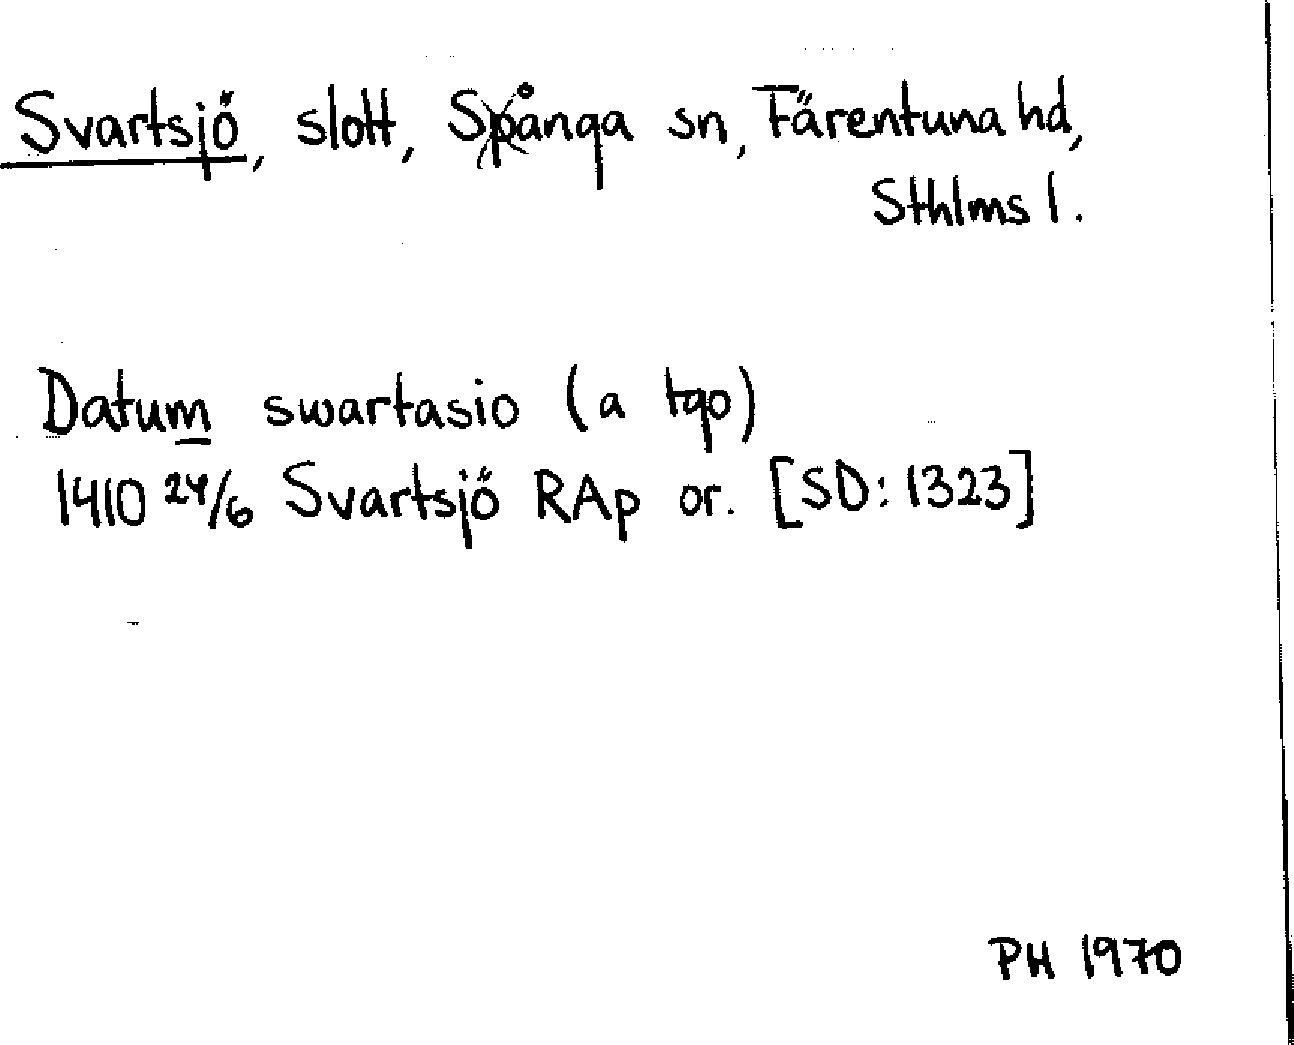 Svartsjö, slott, Sånga sn, Färentuna hd,
Sthlms l.
Datum swartasio (a tqo)
1410 24/6 Svartsjö RAp or. [SD: 1323]
PH 1970